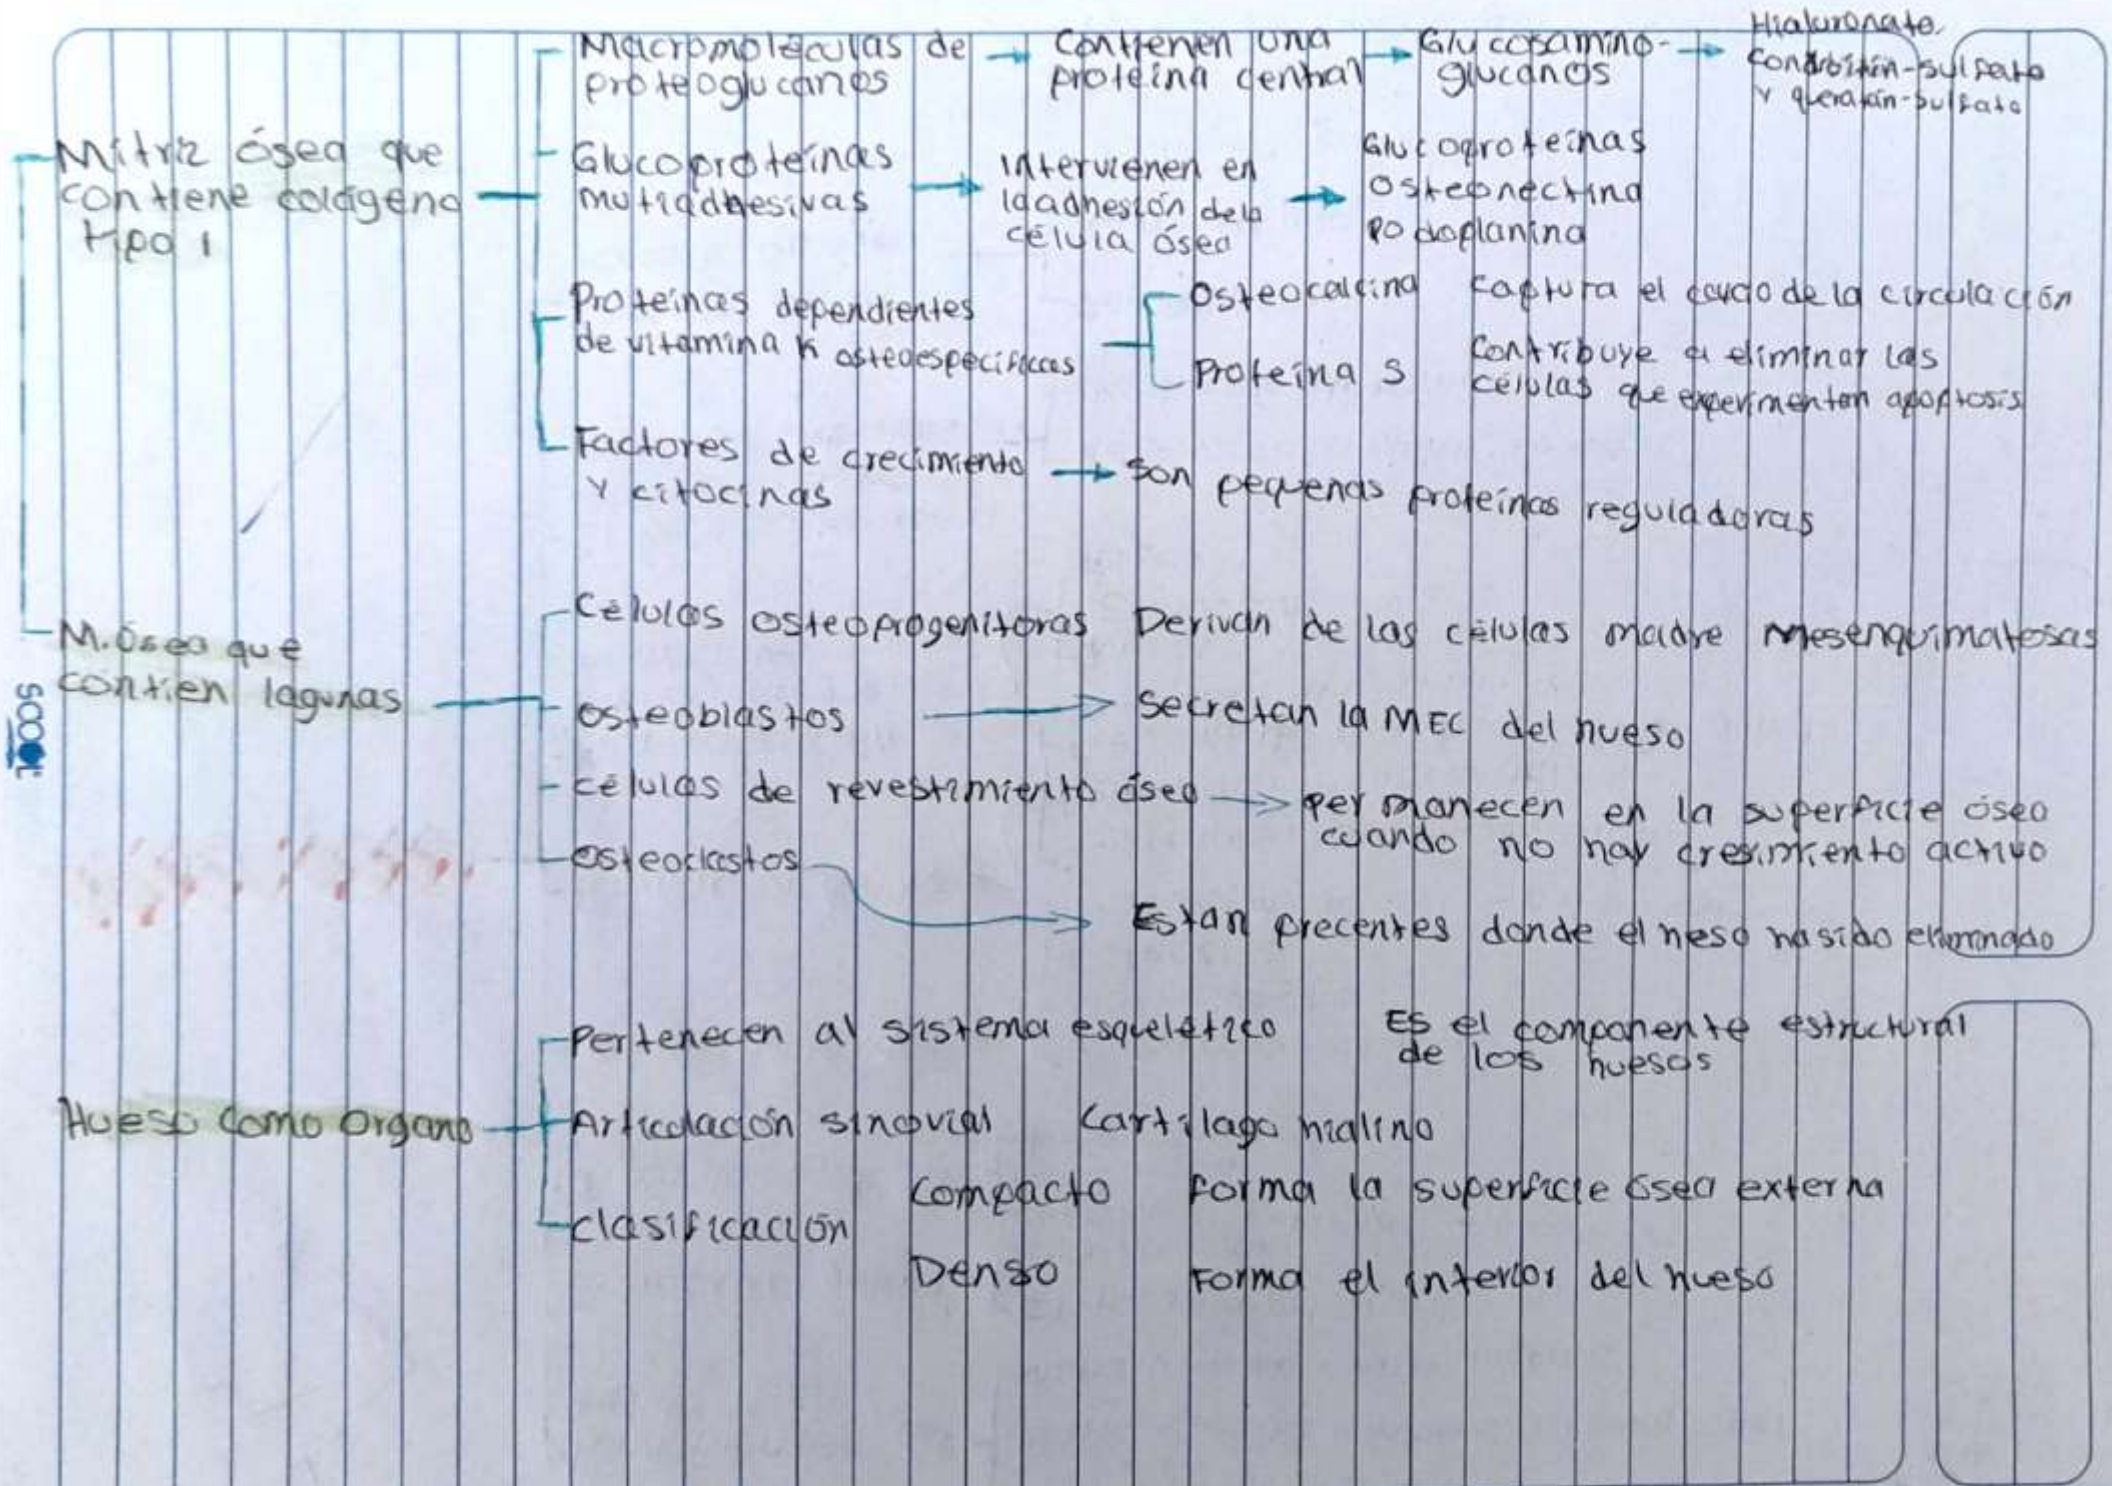 Macromoléculas de
proteoglucanos
Contienen una
proteína central
Glucosamino-
glucanos
Hialuronato,
condroitin-sulfato
y queratán-sulfato
Mitriz ósea que
contiene colágeno
tipo 1
Glucoproteínas
mutiadhesivas
Intervienen en
la adhesión de la
célula ósea
Glucoproteínas
Osteonectina
Podoplanina
Proteínas dependientes
de vitamina K osteoespecíficas
Osteocalcina
Captura el de la circulación
Proteína S
Contribuye a eliminar las
células que experimentan apoptosis
Factores de crecimiento
y citocinas
Son pequenas proteínas reguladoras
M. Ósea que
contien lagunas
Células osteoprogenitoras
Derivan de las células madre mesenquimatosas
Osteoblastos
Secretan la MEC del hueso
Células de revestimiento óseo
permanecen en la superficie óseo
cuando no hay cresimiento activo
Osteoclastos
Estan precentes donde el heso ha sido eliminado
SCOOL
Hueso como Organo
Pertenecen al sistema esquelético
Es el componente estructural
de los huesos
Articulación sinovial
Cartílago hialino
Clasificación
Compacto
Forma la superficie ósea externa
Denso
Forma el interior del hueso